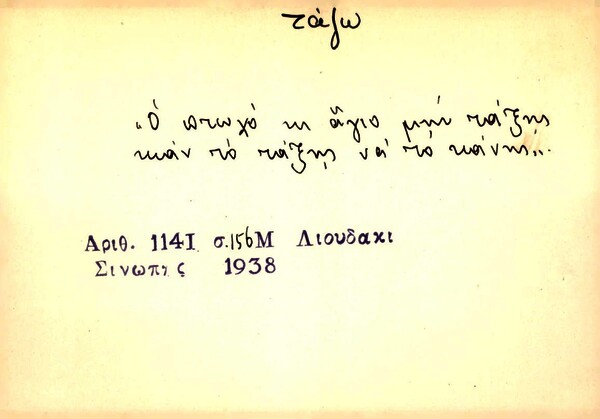 τάζω
„Ὁ πτωχό κι ἅγιο μήν τάξης
κιάν τό τάξης νά τό κάνης„.
Αριθ. 1141 σ.156 Μ Λιουδακι
Σινωπης 1938